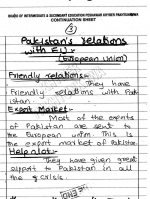 BOARD OF INTERMEDIATE & SECONDARY EDUCATION PESHAWAR KHYBER PAKHTUNKHWA
CONTINUATION SHEET
3
Pakistan's relations
with EU:-
(European union)
Friendly relations:-
They have
friendly relations with Pak
istan.
Export Market:-
Most of the exports
of Pakistan are sent to
the European union. This is
the export market of Pakistan.
Help a lot:-
They have given great
support to Pakistan in all
the crisis.